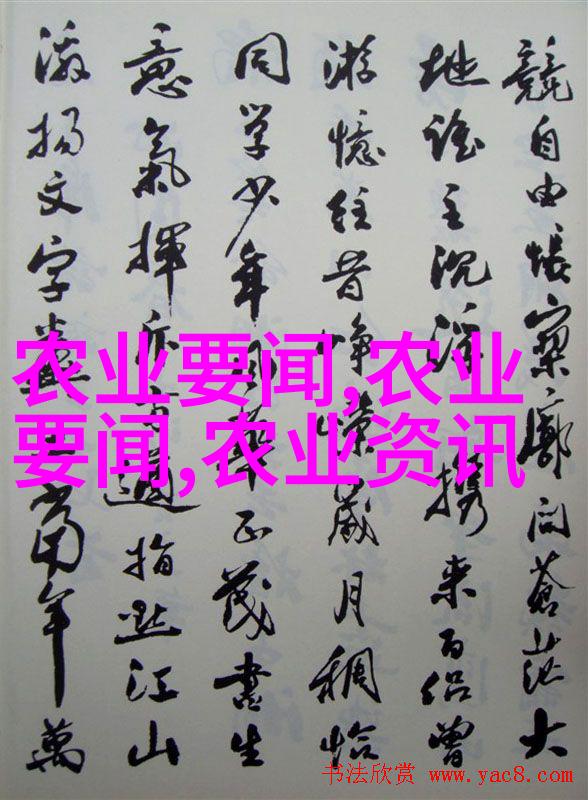 競自由悵寥廓问蒼茫大
地谁主沉浮携来百侣曾
游憶往昔峥嵘歲月稠恰
同学少年风華正茂書生
意氣揮斥方遒指點江山
激揚文字糞土當年萬
农业要闻,农业
要闻,农业资讯
书法欣赏 www.yac8.com